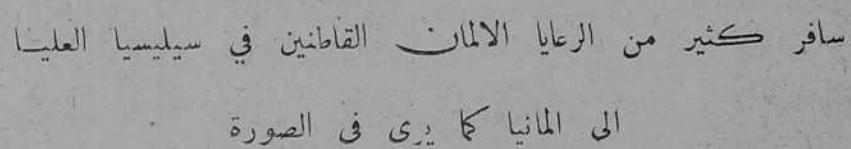 سافر كثير من الرعايا الالمان القاطنين في سيليسيا العليا
الى المانيا كما يرى فى الصورة